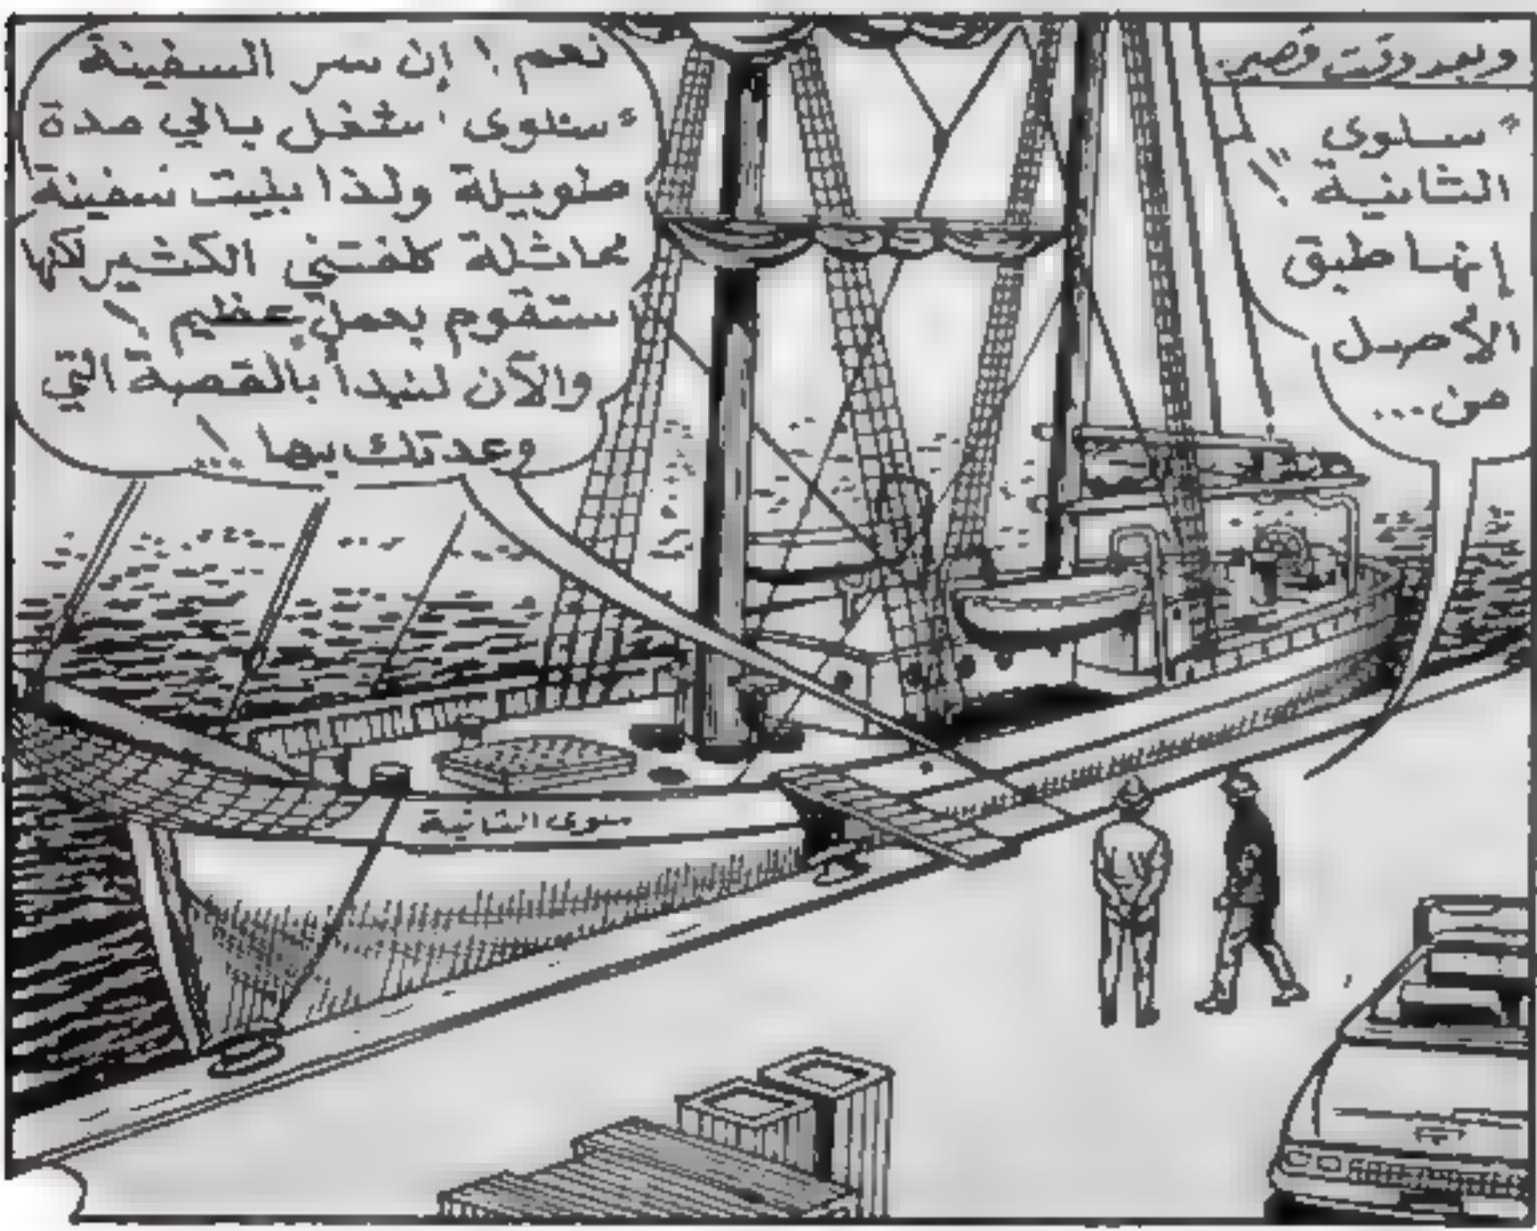 وبعد وقت قصير.
"سلوى
الثانية"!
إنها طبق
الأصل
من...
نعم! إن سر السفينة
"سلوى" شغل بالي مدة
طويلة ولذا بنيت سفينة
مماثلة كلفتني الكثير لكنها
ستقوم بعمل عظيم!
والآن لنبدأ بالقصة التي
وعدتك بها...!
سلوى الثانية